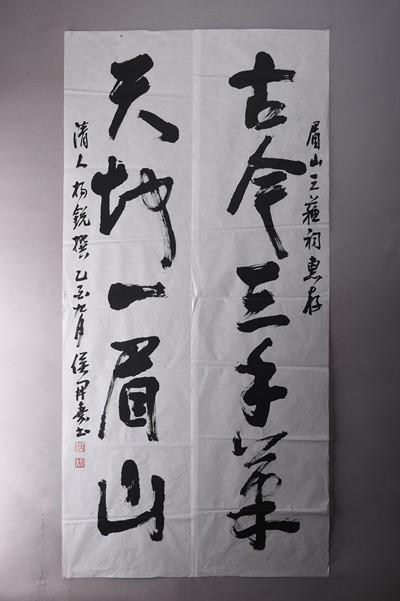 眉山三蘇祠惠存
古今三手筆
天地一眉山
清人楊銳撰乙亥九月侯開嘉书